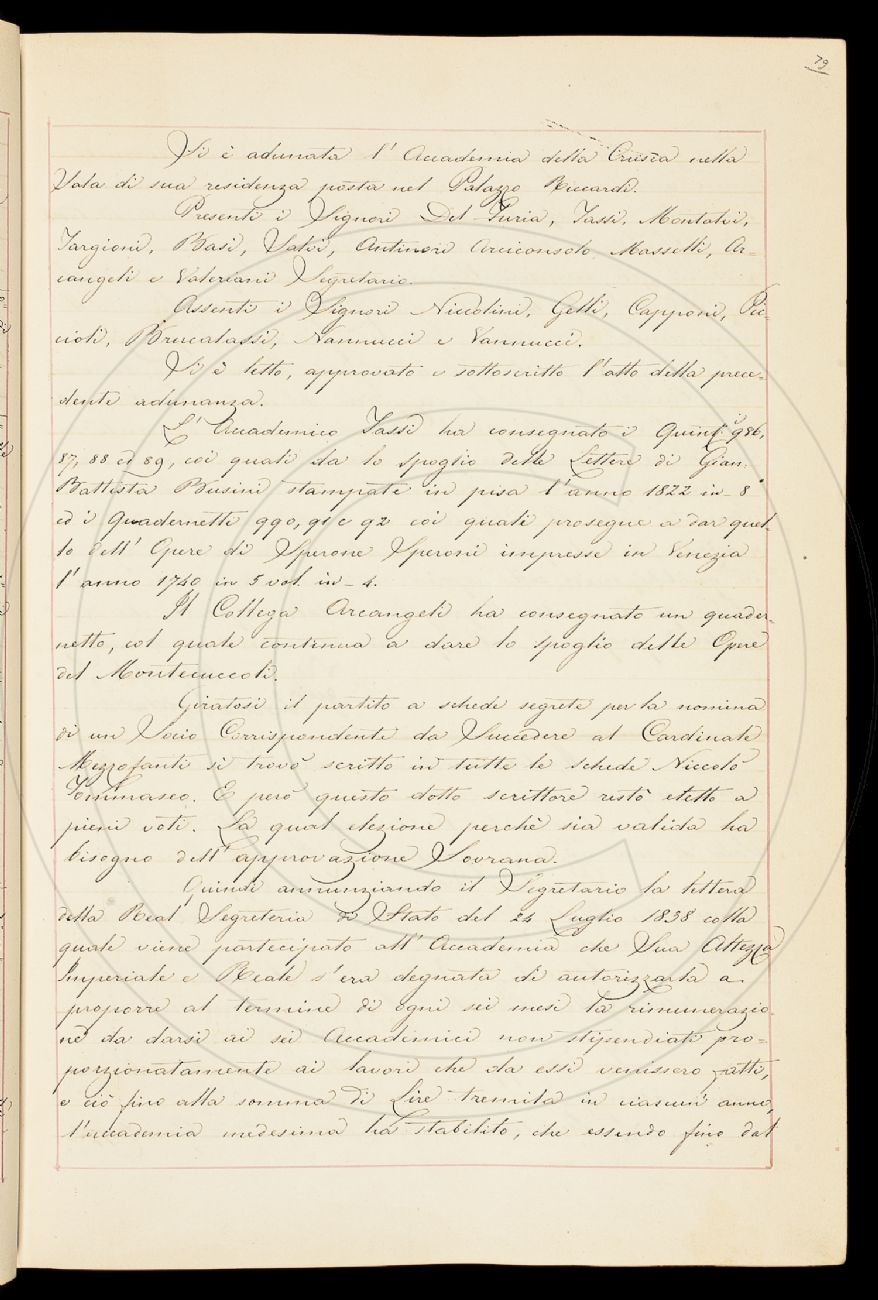 79
Si è adunata l' Accademia della Crusca nella
Sala di sua residenza posta nel Palazzo Riccardi.
Presenti i Signori Del Furia, Tassi, Montalvi,
Targioni, Basi, Salvi, Antinori Arciconsolo, Masselli, Ar=
cangeli e Valeriani Segretario.
Assenti i Signori Niccolini, Gelli, Capponi, Puc=
cioli, Brucalassi, Nannucci e Vannucci.
Si è letto, approvato e sottoscritto l'atto della prece=
dente adunanza.
L' Accademico Tassi ha consegnato i Quint.i 986,
87, 88 ed 89, coi quali da lo spoglio delle Lettere di Gian.
Battista Busini stampate in pisa l'anno 1822 in - 8°
ed i Quadernetti 990, 91 e 92 coi quali prosegue a dar quel=
lo dell' Opere di Sperone Speroni impresse in Venezia
l'anno 1740 in 5 vol. in - 4.
Il Collega Arcangeli ha consegnato un quader=
netto, col quale continua a dare lo spoglio delle Opere
del Montecuccoli.
Giratosi il partito a schede segrete per la nomina
di un Socio Corrispondente da Succedere al Cardinale
Mezzofanti si trovò scritto in tutte le schede Niccolò
Tommaseo. E però questo dotto scrittore restò eletto a
pieni voti. La qual elezione perchè sia valida ha
bisogno dell'approvazione Sovrana.
Quindi annunziando il Segretario la lettera
della Real Segreteria di Stato del 24 Luglio 1838 colla
quale viene partecipato all' Accademia che Sua Altezza
Imperiale e Reale s'era degnata di autorizzarla a
proporre al termine di ogni sei mesi la rimunerazio=
ne da darsi ai sei Accademici non stipendiati pro=
porzionatamente ai lavori che da essi venissero fatti,
e ciò fino alla somma di Lire tremila in ciascun' anno,
l'accademia medesima ha stabilito, che essendo fino dal